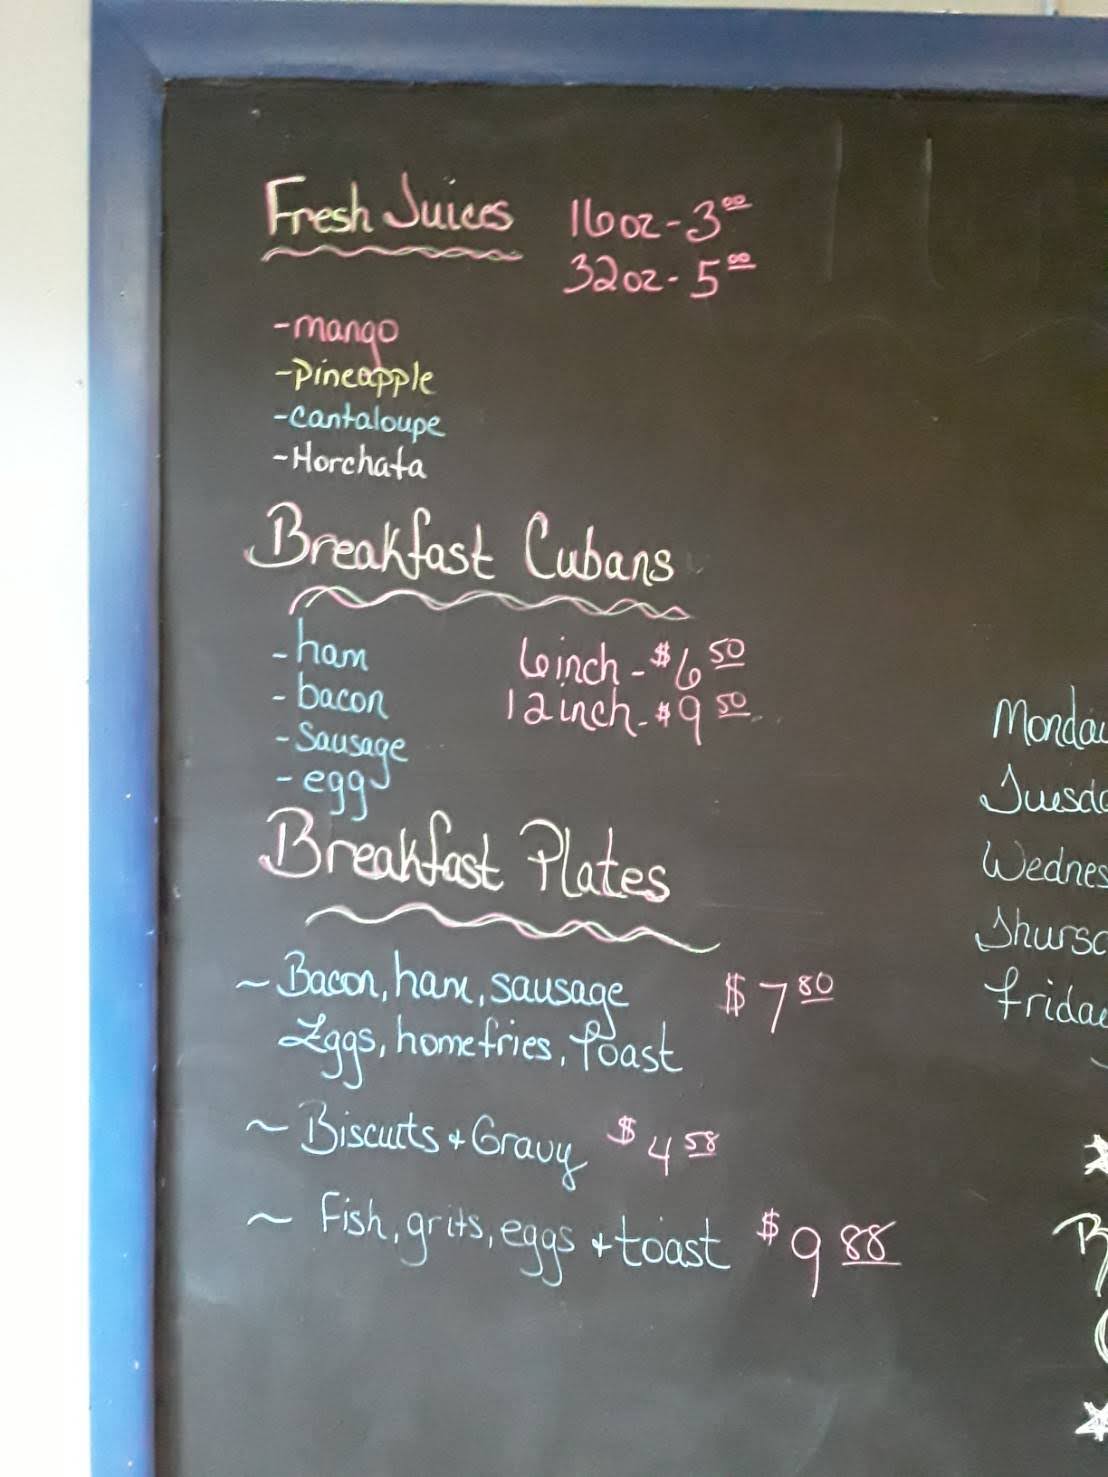 Fresh Juices 16oz - 3.00
32oz - 5.00
- mango
- Pineapple
- Cantaloupe
- Horchata
Breakfast Cubans
- ham 6 inch - $6.50
- bacon 12 inch - $9.50
- Sausage
- egg
Breakfast Plates
~ Bacon, ham, sausage $7.80
Eggs, homefries, Toast
~ Biscuits + Gravy $4.58
~ Fish, grits, eggs + toast $9.88
Monday
Tuesda
Wednes
Thursd
Friday